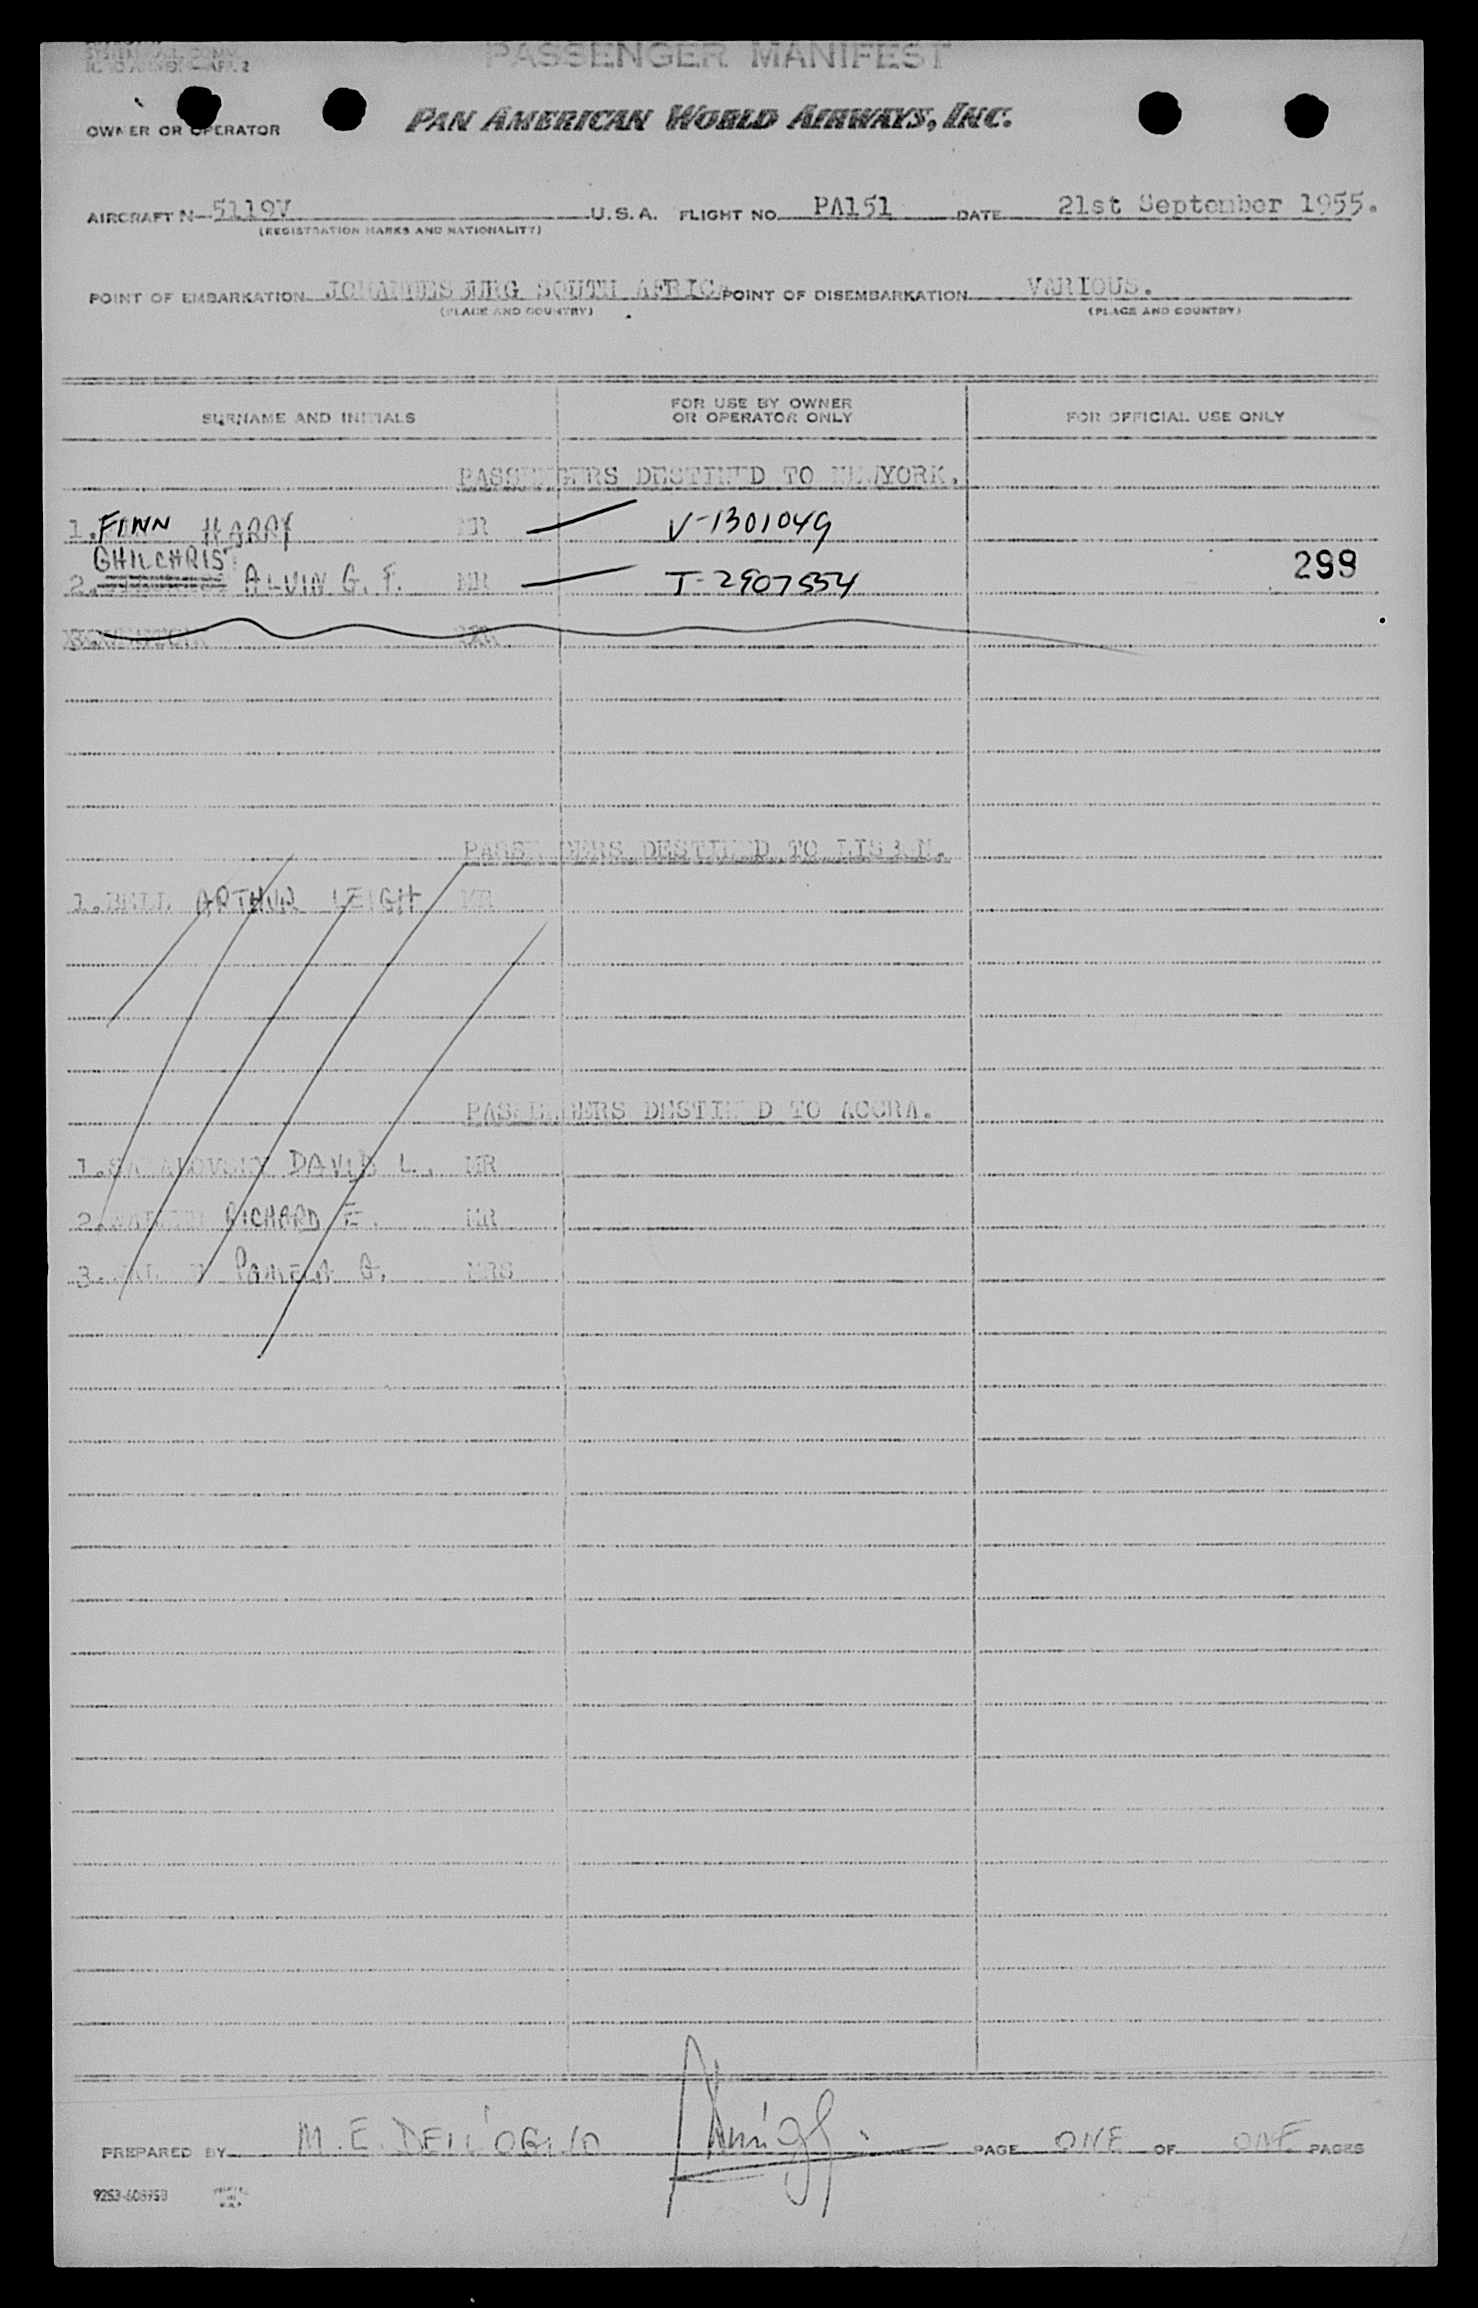 PASSENGER MANIFEST
OWNER OR OPERATOR PAN AMERICAN WORLD AIRWAYS, INC.
AIRCRAFT N-5119V U.S.A. FLIGHT NO. PA151 DATE 21st September 1955.
(REGISTRATION MARKS AND NATIONALITY)
POINT OF EMBARKATION JOHANNESBURG SOUTH AFRICA POINT OF DISEMBARKATION VARIOUS.
(PLACE AND COUNTRY) (PLACE AND COUNTRY)
FOR USE BY OWNER
SURNAME AND INITIALS OR OPERATOR ONLY FOR OFFICIAL USE ONLY
PASSENGERS DESTINED TO NEWYORK.
1. FINN HARRY MR V-1301049
GHILCHRIST
2. ALVIN G. F. MR T-2907554
298
PASSENGERS DESTINED TO LISBON.
1. BELL ARTHUR LEIGH MR
PASSENGERS DESTINED TO ACCRA.
1. DAVID L. MR
2. RICHARD E. MR
3. PAMELA G. MRS
PREPARED BY M.E. DELL'OGLIO PAGE ONE OF ONE PAGES
9253-608950